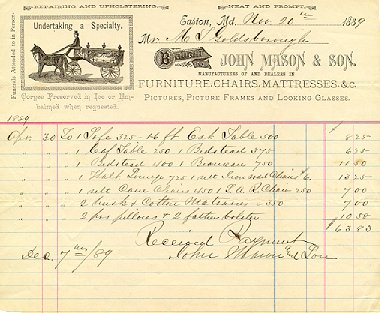 REPAIRING AND UPHOLSTERING, NEAT AND PROMPT.
Undertaking a Specialty.
Funerals Attended to in Person.
Corpse Preserved in Ice or Embalmed when requested.
Easton, Md. Nov. 20th 1889
Mr M T Goldsborough
JOHN MASON & SON.
MANUFACTURERS OF AND DEALERS IN
FURNITURE, CHAIRS, MATTRESSES, &c.
PICTURES, PICTURE FRAMES AND LOOKING GLASSES.
1889
30 To 1 325 ft Table 500 8 25
" " 1 Table 250 1 Bedstead 375 6 25
" " 1 Bedstead 400 1 Bureau 750 11 50
" " 1 Hall 725 1 sett Chairs 6. 13 25
" " 1 sett Cane Chairs 1 Chair 250 7 00
" " 2 Husk & Cotton 350 7 00
2 prs pillows & 2 bolster 10 50
$63.83
Received Payment
Dec 7th /89 John Mason & Son